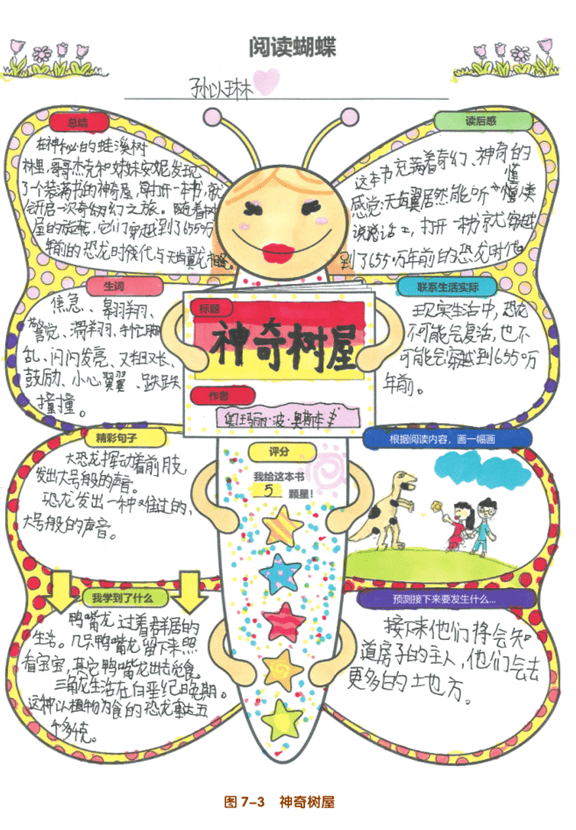 阅读蝴蝶
总结
在神秘的蛙溪树
林里,哥哥杰克和妹妹安妮发现
了个装满书的神奇屋,每打开一本书,就
会开启一次奇幻梦幻之旅。随着树
屋的旋转,它们穿越到了6550万
年前的恐龙时代与无齿翼龙
读后感
这本书充满着奇幻、神奇的
感觉,无齿翼居然能听懂人类
说话,打开一本书就穿越
到了6550万年前的恐龙时代。
生词
焦急、翱翔、
警觉、滑翔、手忙脚
乱、闪闪发亮、又粗又长、
鼓励、小心翼翼、跌跌
撞撞。
标题
神奇树屋
作者
玛丽·波·奥斯本
联系生活实际
现实生活中,恐龙
不可能会复活,也不
可能会穿越到6550万
年前。
精彩句子
大恐龙挥动着前肢
发出大号般的声音。
恐龙发出一种怪怪的、
大号般的声音。
评分
我给这本书
5 颗星!
根据阅读内容,画一幅画
我学到了什么
鸭嘴龙过着群居的
生活。几只鸭嘴龙留下来照
看宝宝,其它鸭嘴龙出去觅食。
三角龙生活在白垩纪晚期。
这种以植物为食的恐龙重达五
个多吨。
预测接下来要发生什么...
接下来他们将会知
道房子的主人,他们会去
更多的地方。
图 7-3 神奇树屋